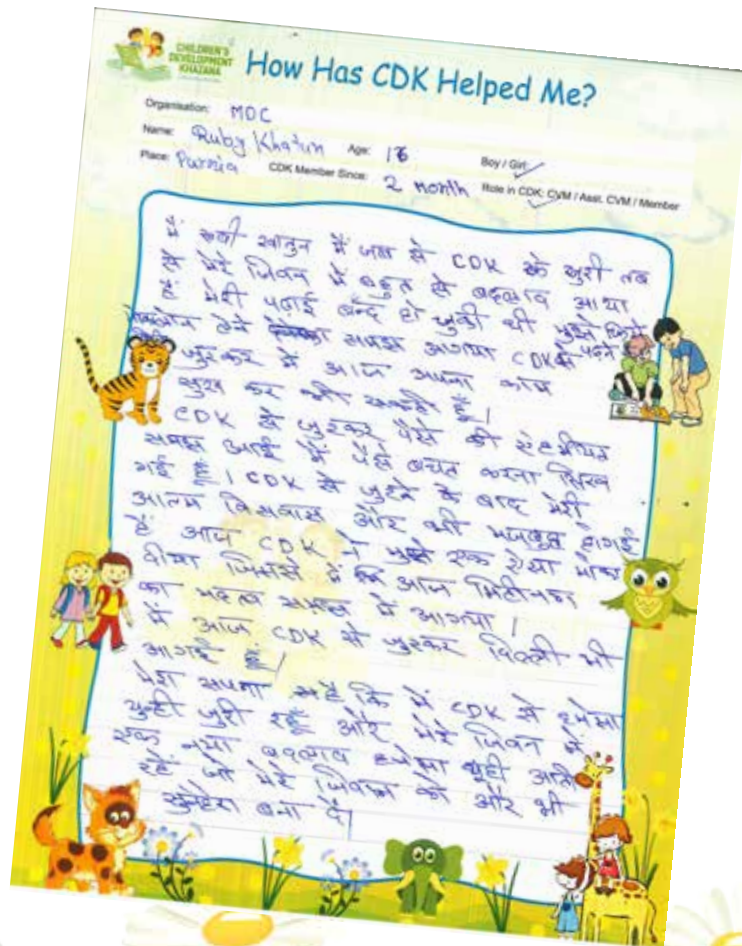 CHILDREN'S
DEVELOPMENT
KHAZANA
How Has CDK Helped Me?
Organisation: MDC
Name: Ruby Khatun Age: 16 Boy / Girl ✓
Place: Purnia CDK Member Since: 2 month Role in CDK: CVM / Asst. CVM / Member
मैं रूबी खातुन मैं जब से CDK से जुरी तब
से मेरे जिवन में बहुत से बदलाव आया
हैं मेरी पढ़ाई बन्द हो चुकी थी मुझे
समझ आगया CDK से
जुरकर मैं आज अपना काम
खुद कर भी सकती हूँ।
CDK से जुरकर पैसे की एहमीयत
समझ आई मैं पैसे बचत करना सिख
गई हूँ। CDK से जुरने के बाद मेरी
आत्म विसवास और भी मजबुत होगई
हैं आज CDK ने मुझे एक ऐसा मौका
दीया जिससे मैं आज मिटींनग
का महत्व समझ में आगया।
मैं आज CDK से जुरकर दिल्ली भी
आगई हूँ।
मेरा सपना है कि मैं CDK से हमेसा
युही जुरी रहूँ और मेरे जिवन में
एक नया बदलाव हमेसा युही आते
रहें जो मेरे जिवन को और भी
सुनहेरा बना दें।